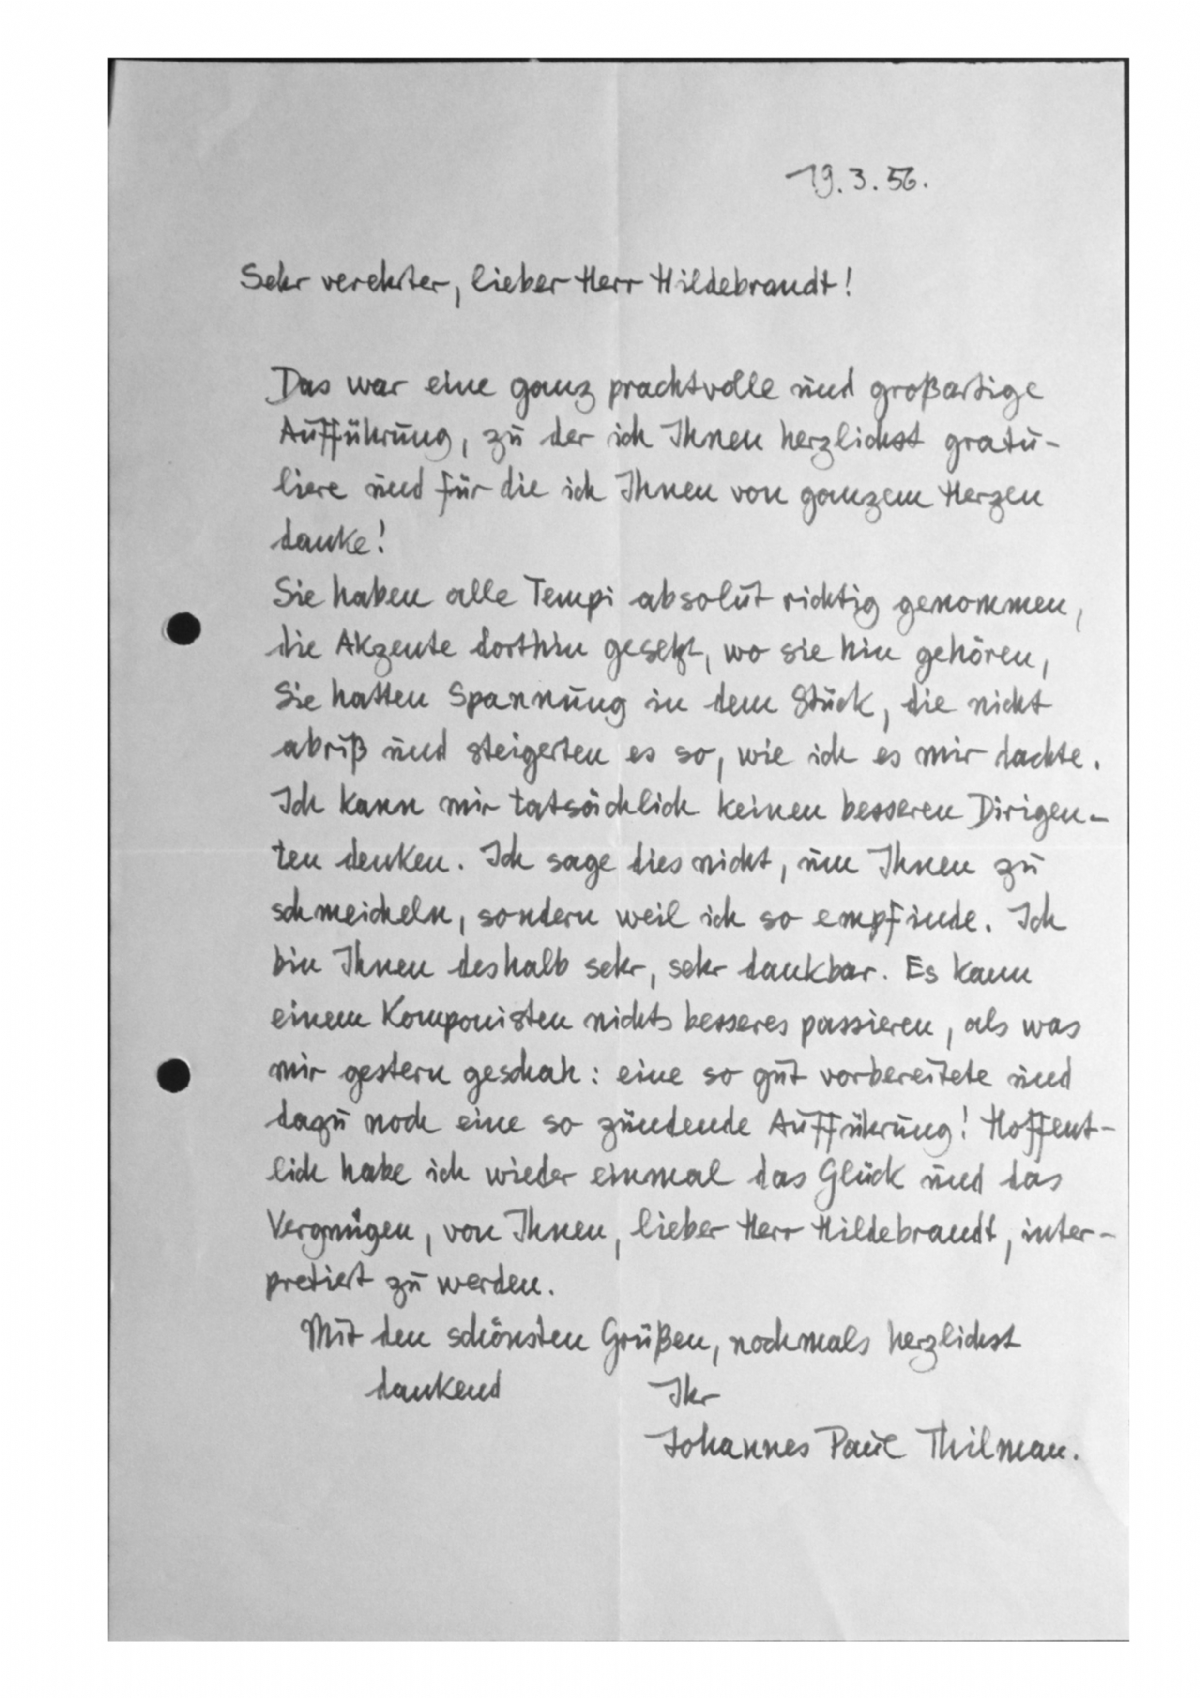 19.3.56.
Sehr verehrter, lieber Herr Hildebrandt!
Das war eine ganz prachtvolle und großartige
Aufführung, zu der ich Ihnen herzlichst gratu-
liere und für die ich Ihnen von ganzem Herzen
danke!
Sie haben alle Tempi absolut richtig genommen,
die Akzente dorthin gesetzt, wo sie hin gehören,
Sie hatten Spannung in dem Stück, die nicht
abriß und steigerten es so, wie ich es mir dachte.
Ich kann mir tatsächlich keinen besseren Dirigen-
ten denken. Ich sage dies nicht, um Ihnen zu
schmeicheln, sondern weil ich so empfinde. Ich
bin Ihnen deshalb sehr, sehr dankbar. Es kann
einem Komponisten nichts besseres passieren, als was
mir gestern geschah: eine so gut vorbereitete und
dazu noch eine so zündende Aufführung! Hoffent-
lich habe ich wieder einmal das Glück und das
Vergnügen, von Ihnen, lieber Herr Hildebrandt, inter-
pretiert zu werden.
Mit den schönsten Grüßen, nochmals herzlichst
dankend Ihr
Johannes Paul Thilman.